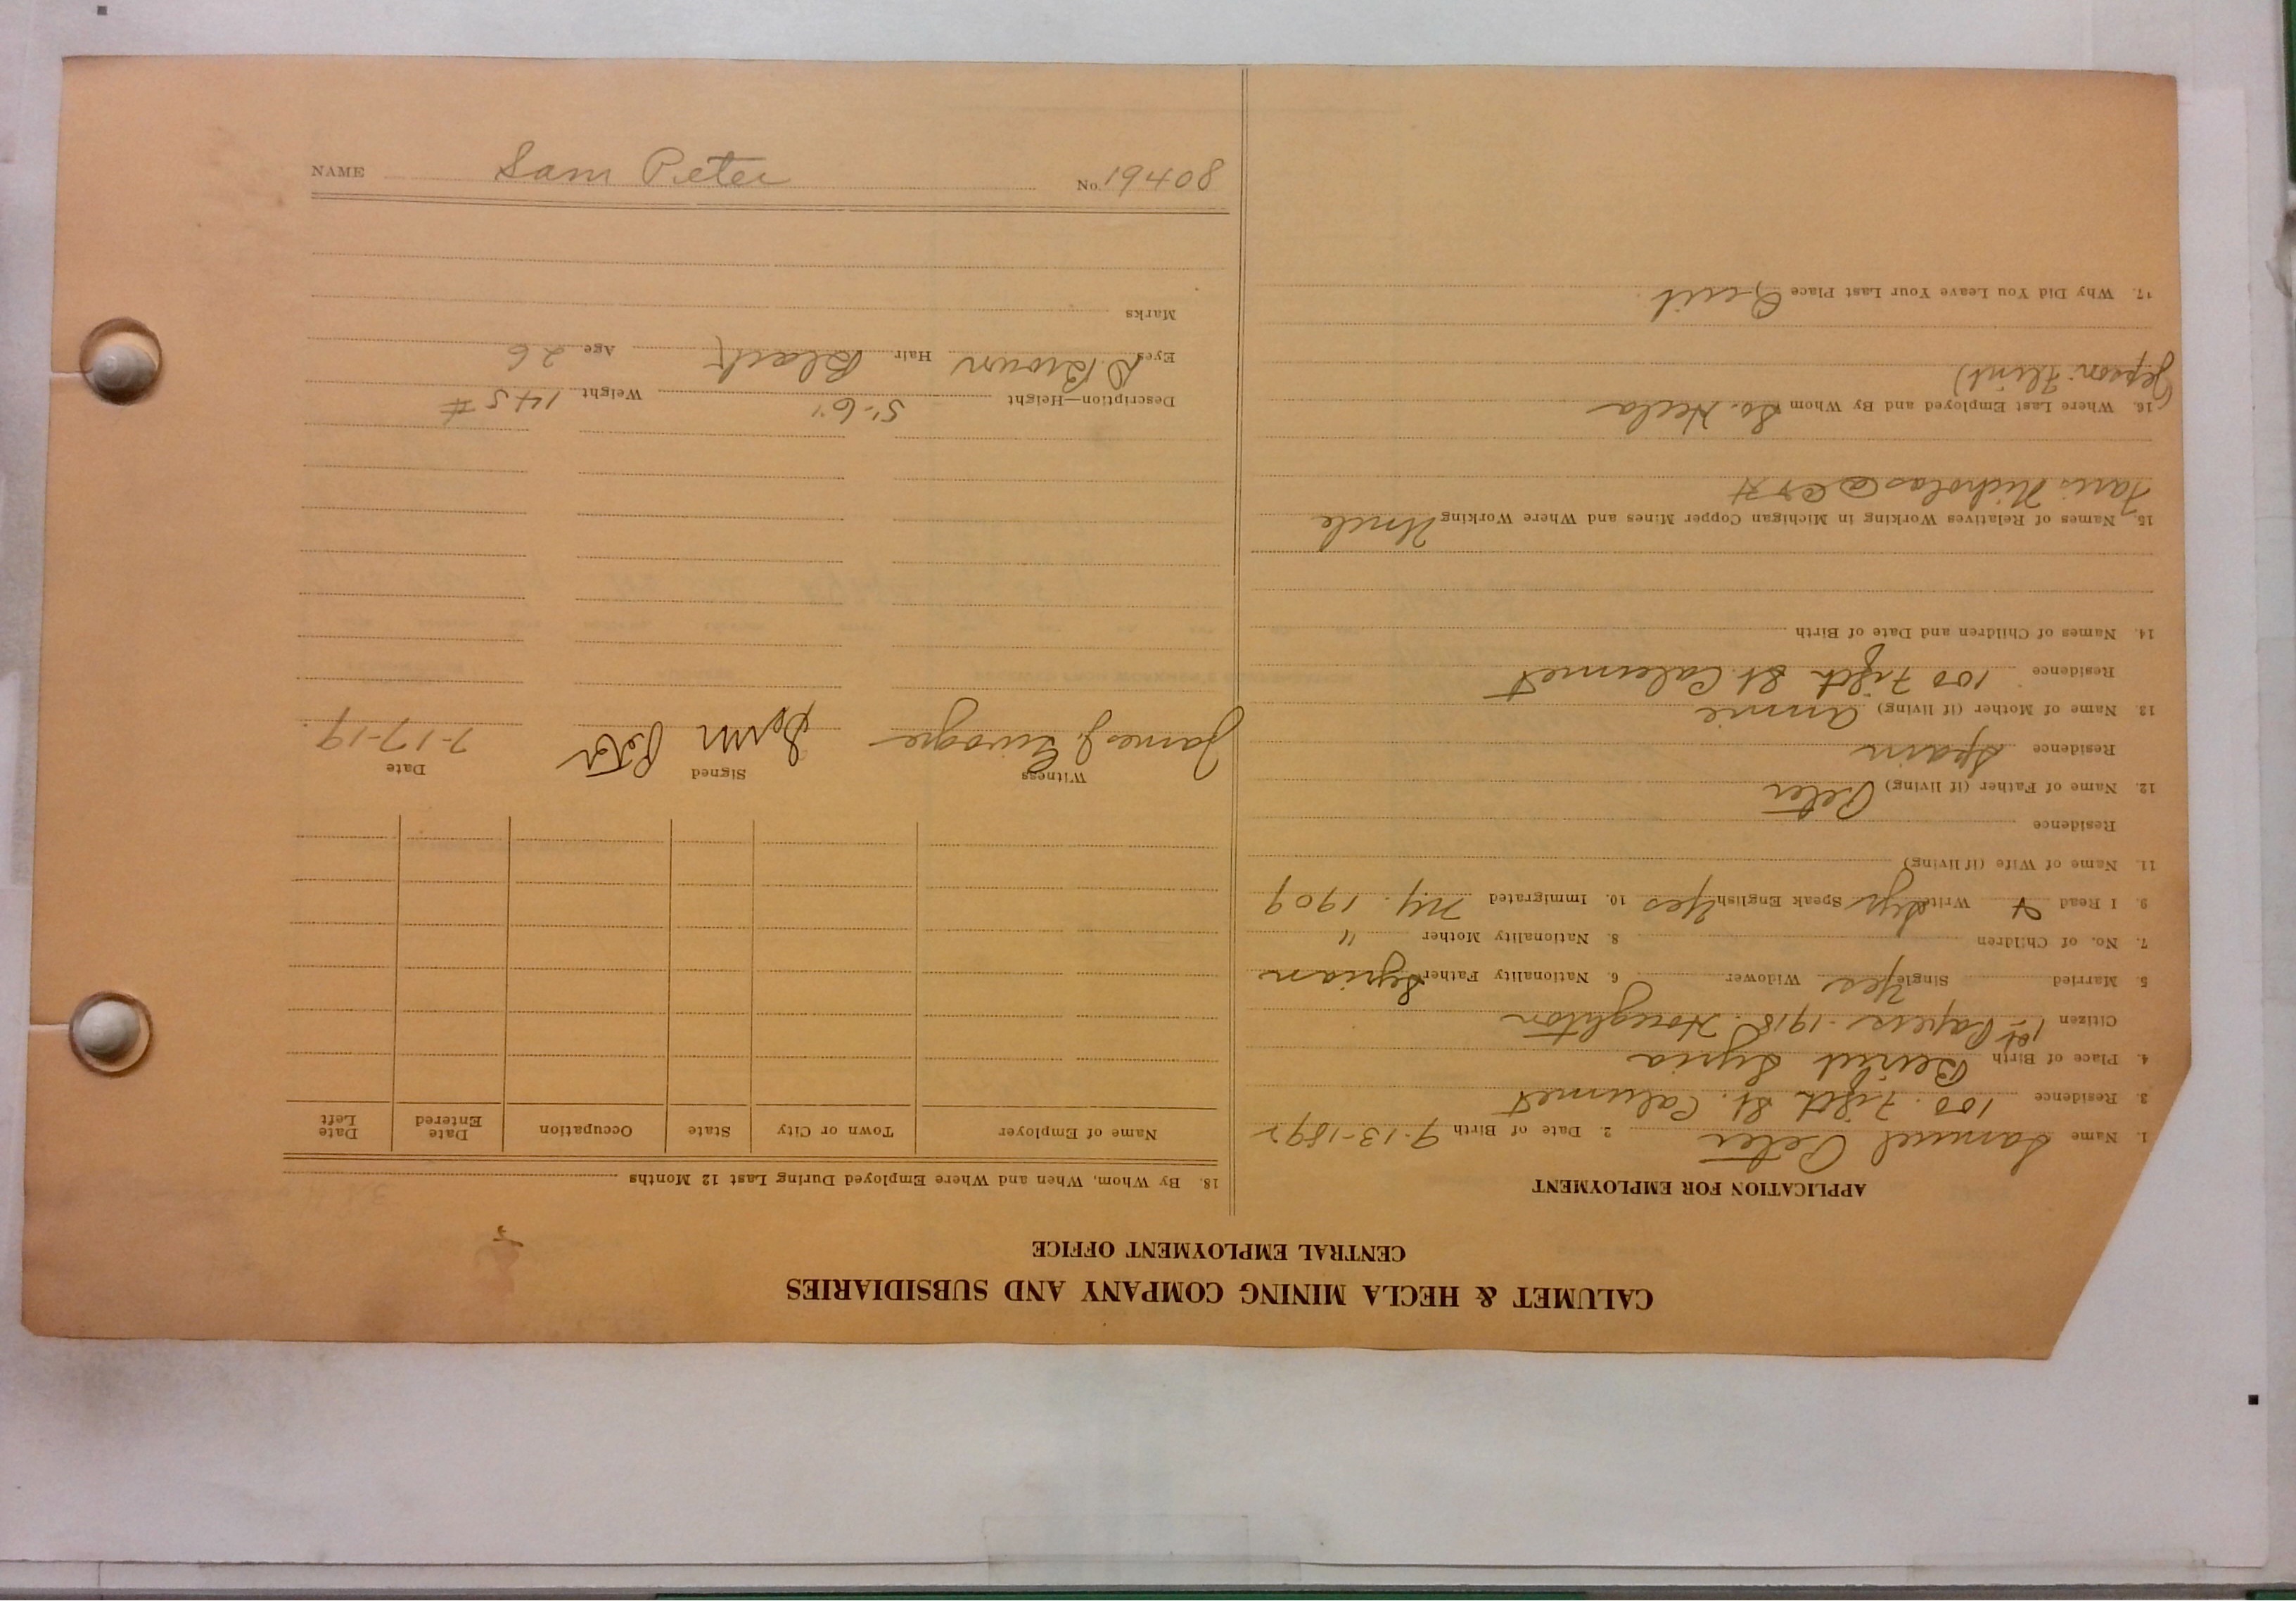 CALUMET & HECLA MINING COMPANY AND SUBSIDIARIES
CENTRAL EMPLOYMENT OFFICE
APPLICATION FOR EMPLOYMENT
1. Name Samuel Peter 2. Date of Birth 9-13-1892
3. Residence 100 Fifth St. Calumet
4. Place of Birth Beirut Syria
Citizen 1st Papers 1918. Houghton
5. Married Single Yes Widower 6. Nationality Father Syrian
7. No. of Children 8. Nationality Mother "
9. I Read & Write Syr Speak English Yes 10. Immigrated NY. 1909
11. Name of Wife (if living)
Residence
12. Name of Father (if living) Peter
Residence Spain
13. Name of Mother (if living) Annie
Residence 100 Fifth St. Calumet
14. Names of Children and Date of Birth
15. Names of Relatives Working in Michigan Copper Mines and Where Working Uncle
Faris Nicholas @ C & H
16. Where Last Employed and By Whom So. Hecla
17. Why Did You Leave Your Last Place Quit
18. By Whom, When and Where Employed During Last 12 Months
Name of Employer Town or City State Occupation Date Entered Date Left
Witness Signed Date
James J. Sam Peter 7-17-19.
Description—Height 5'-6" Weight 145 #
Eyes D Brown Hair Black Age 26
Marks
NAME Sam Peter No. 19408